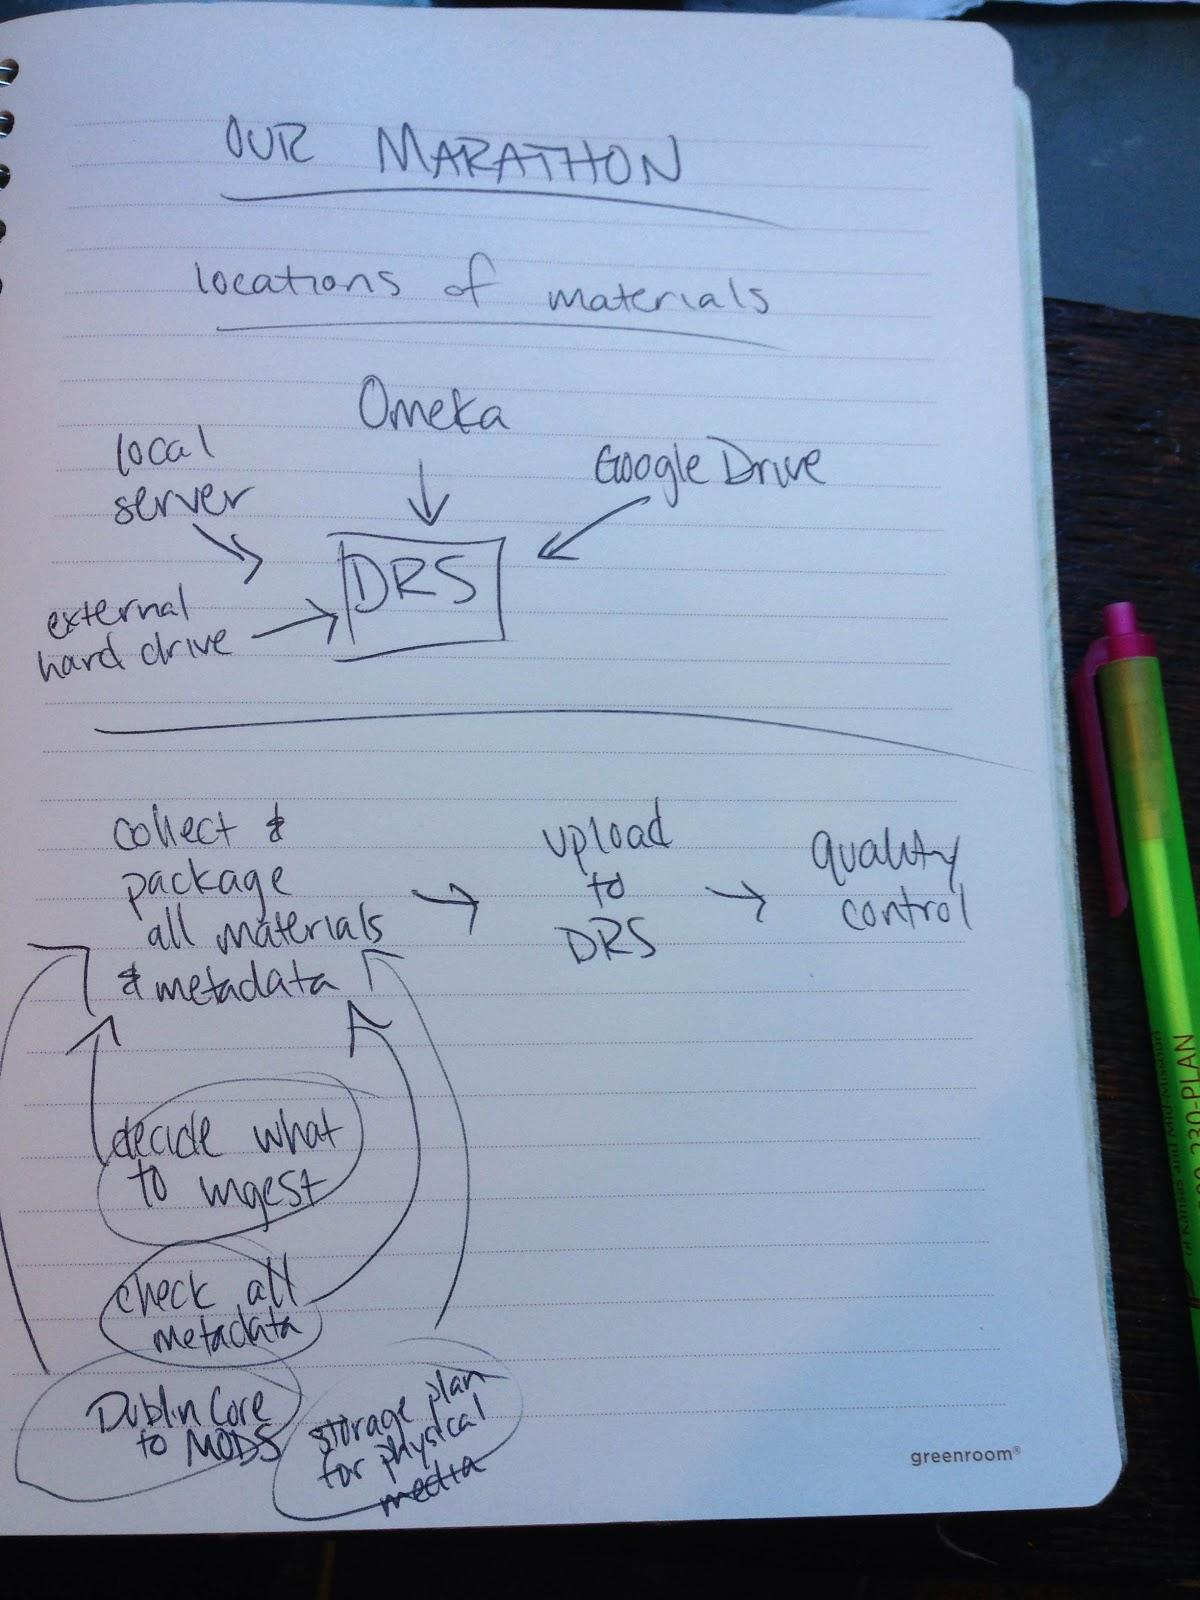 OUR MARATHON
locations of materials
Omeka
local
server
Google Drive
DRS
external
hard drive
collect &
package
all materials
& metadata
upload
to
DRS
quality
control
decide what
to ingest
check all
metadata
Dublin Core
to MODS
storage plan
for physical
media
greenroom®
of Kansas and Mid-Missouri
230-PLAN